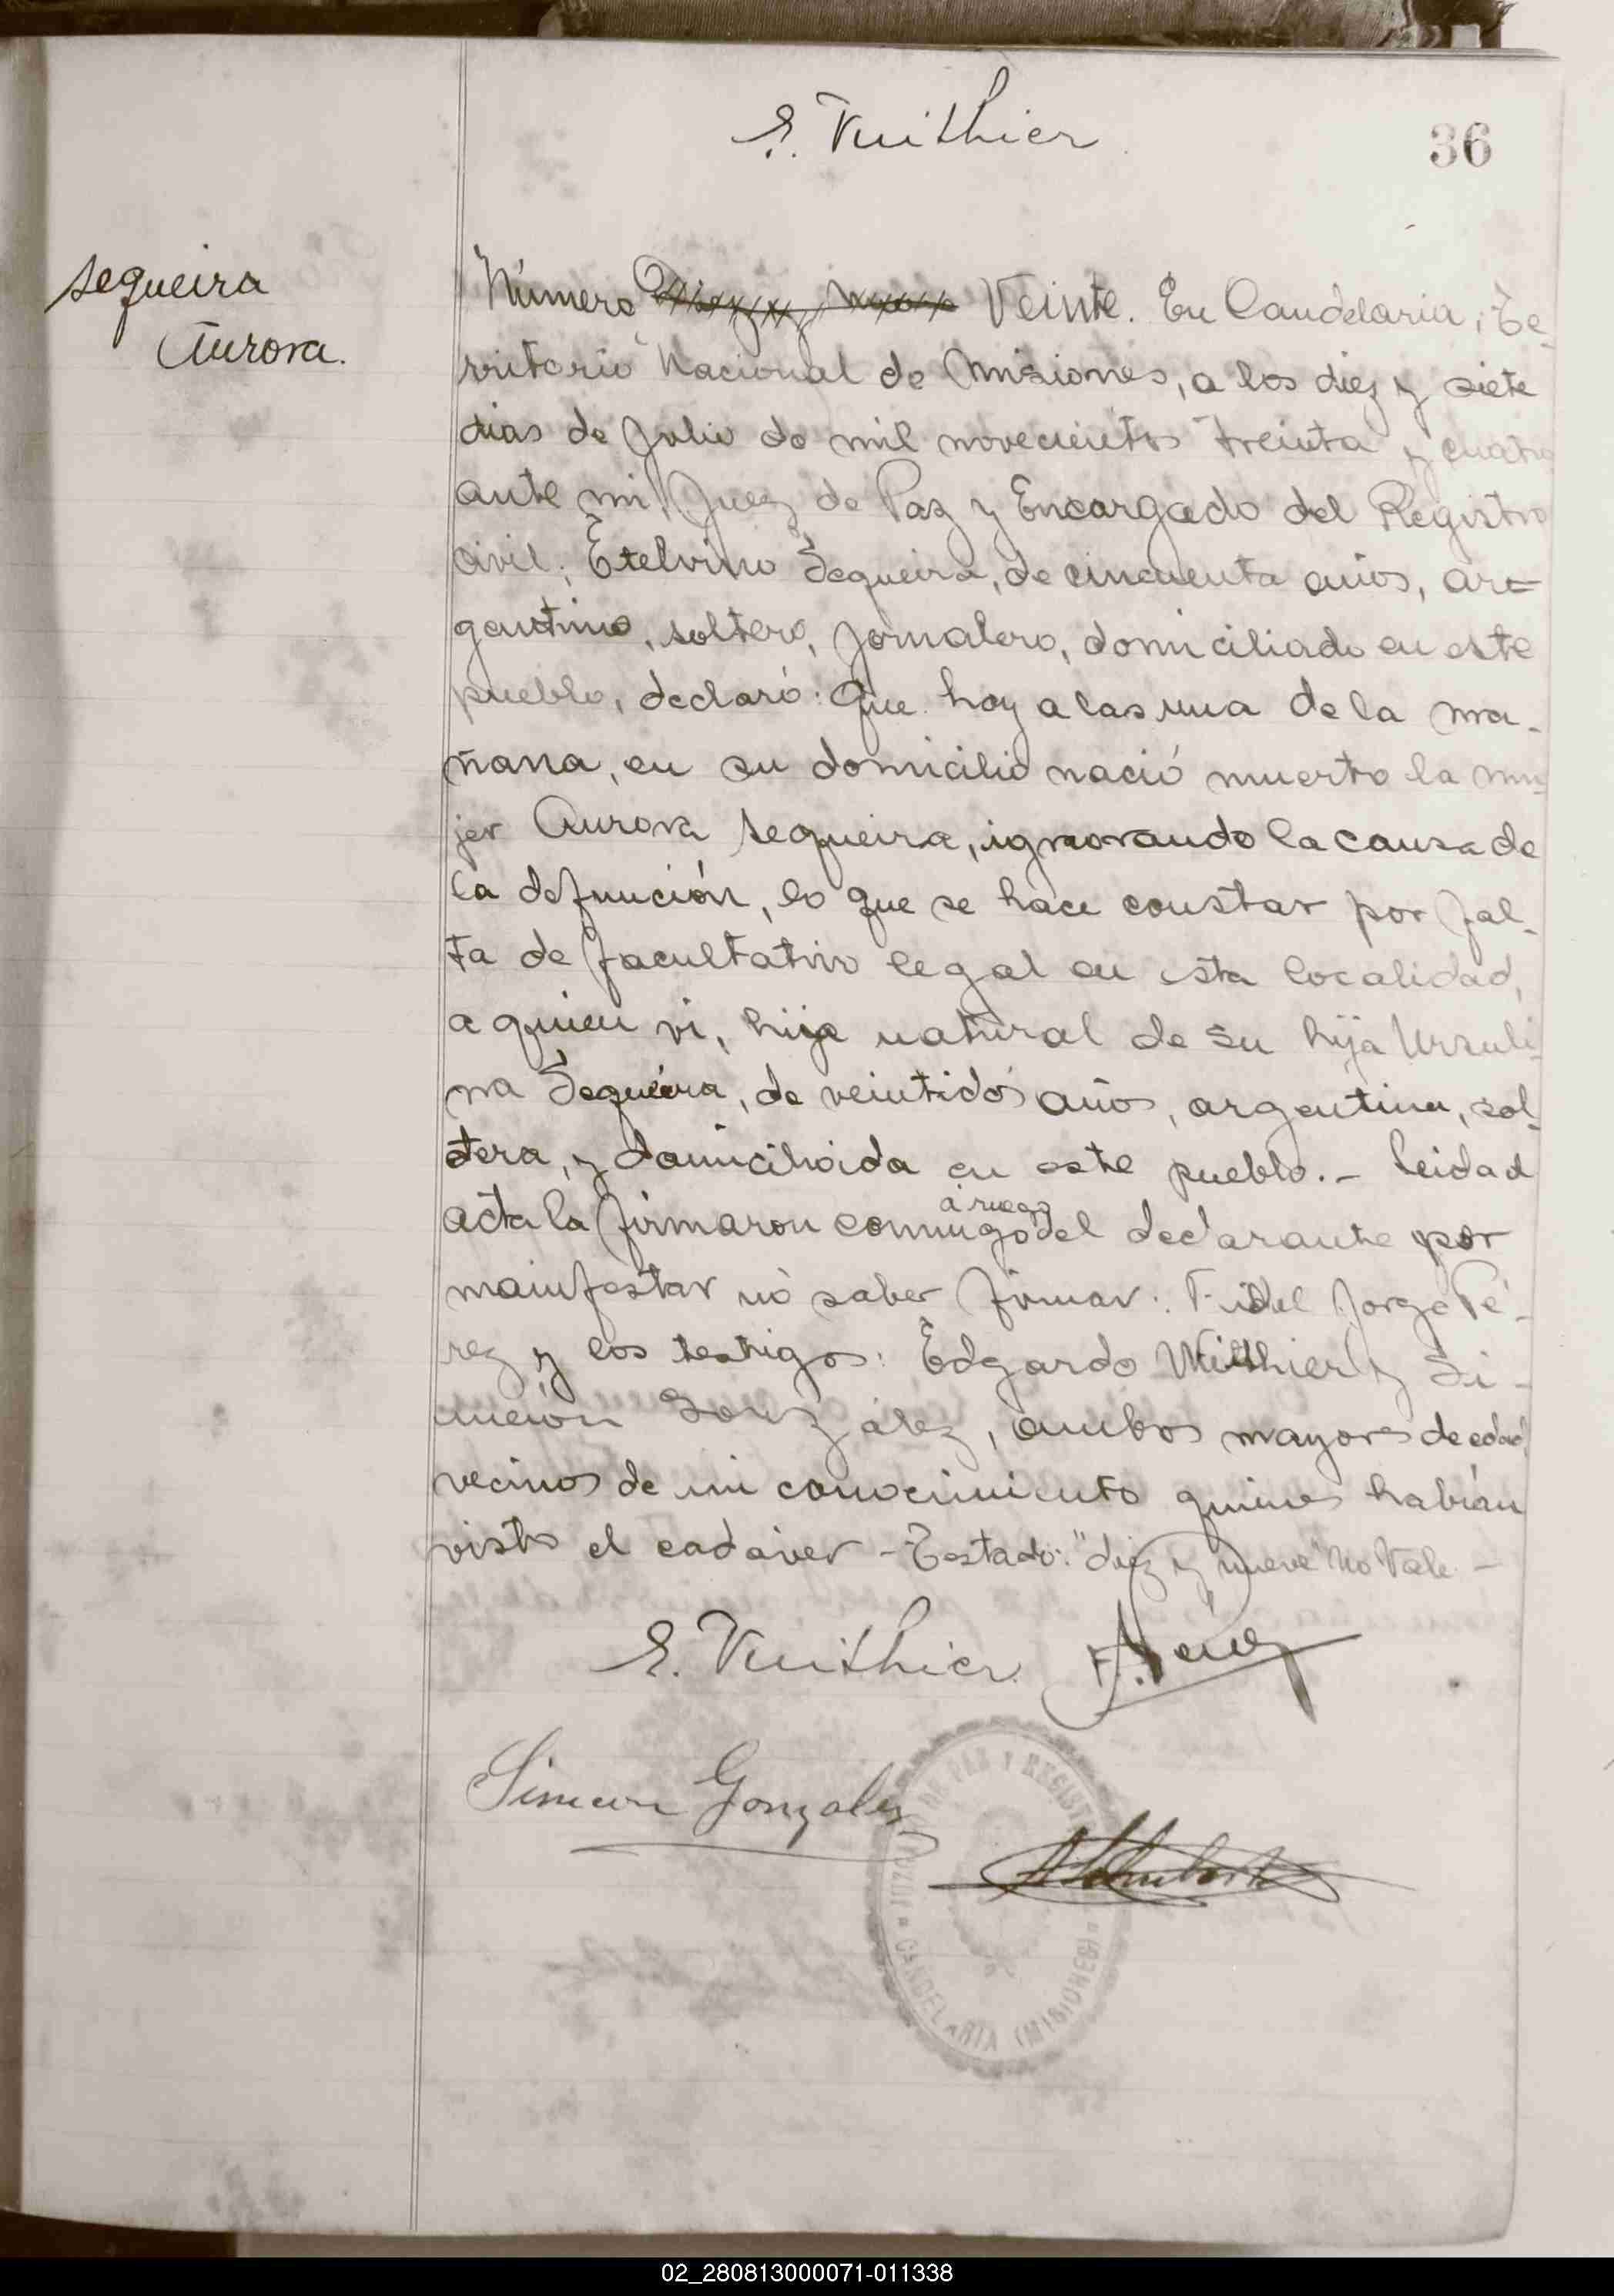 E. Vuithier
36
Sequeira
Aurora.
Número Diez y nueve Veinte. En Candelaria, Te-
rritorio Nacional de Misiones, a los diez y siete
dias de Julio de mil novecientos treinta y cuatro
ante mi, Juez de Paz y Encargado del Registro
Civil; Etelvino Sequeira, de cincuenta años, ar-
gentino, soltero, jornalero, domiciliado en este
pueblo, declaró: Que hoy a las una de la ma-
ñana, en su domicilio nació muerto la mu-
jer Aurora Sequeira, ignorando la causa de
la defunción, lo que se hace constar por fal-
ta de facultativo legal en esta localidad,
a quien vi, hija natural de su hija Ursuli-
na Sequeira, de veintidós años, argentina, sol-
tera, y domiciliada en este pueblo.- Leida el
acta la firmaron conmigo á ruego del declarante por
manifestar no saber firmar: Fidel Jorge Pé-
rez y los testigos: Edgardo Vuithier y Si-
meón González, ambos mayores de edad,
vecinos de mi conocimiento quienes habían
visto el cadáver - Testado: "diez y nueve" No Vale -
E. Vuithier F. J. Pérez
Simeon Gonzalez
JUZGADO DE PAZ Y REGISTRO
CANDELARIA (MISIONES)
02_280813000071-011338